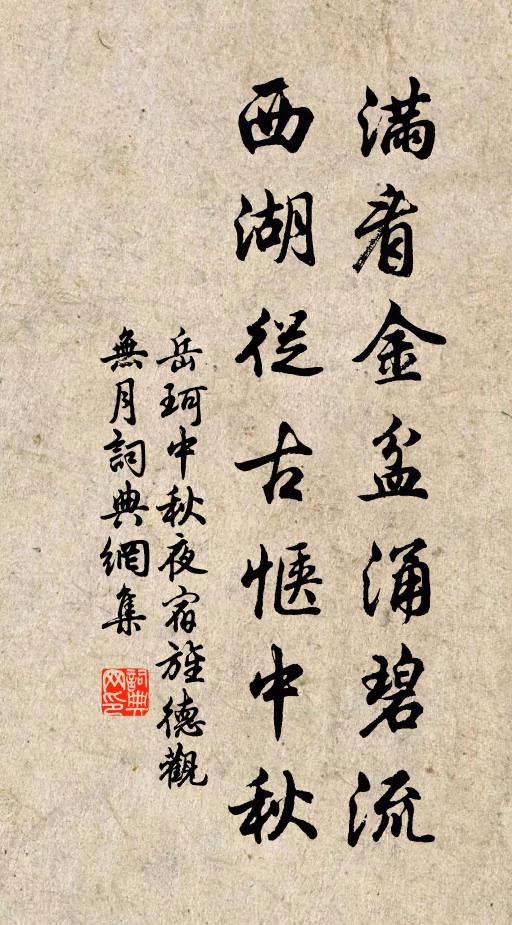 滿看金盆涌碧流
西湖從古愜中秋
岳珂中秋夜宿旌德觀
無月詞典網集
詞典
网印